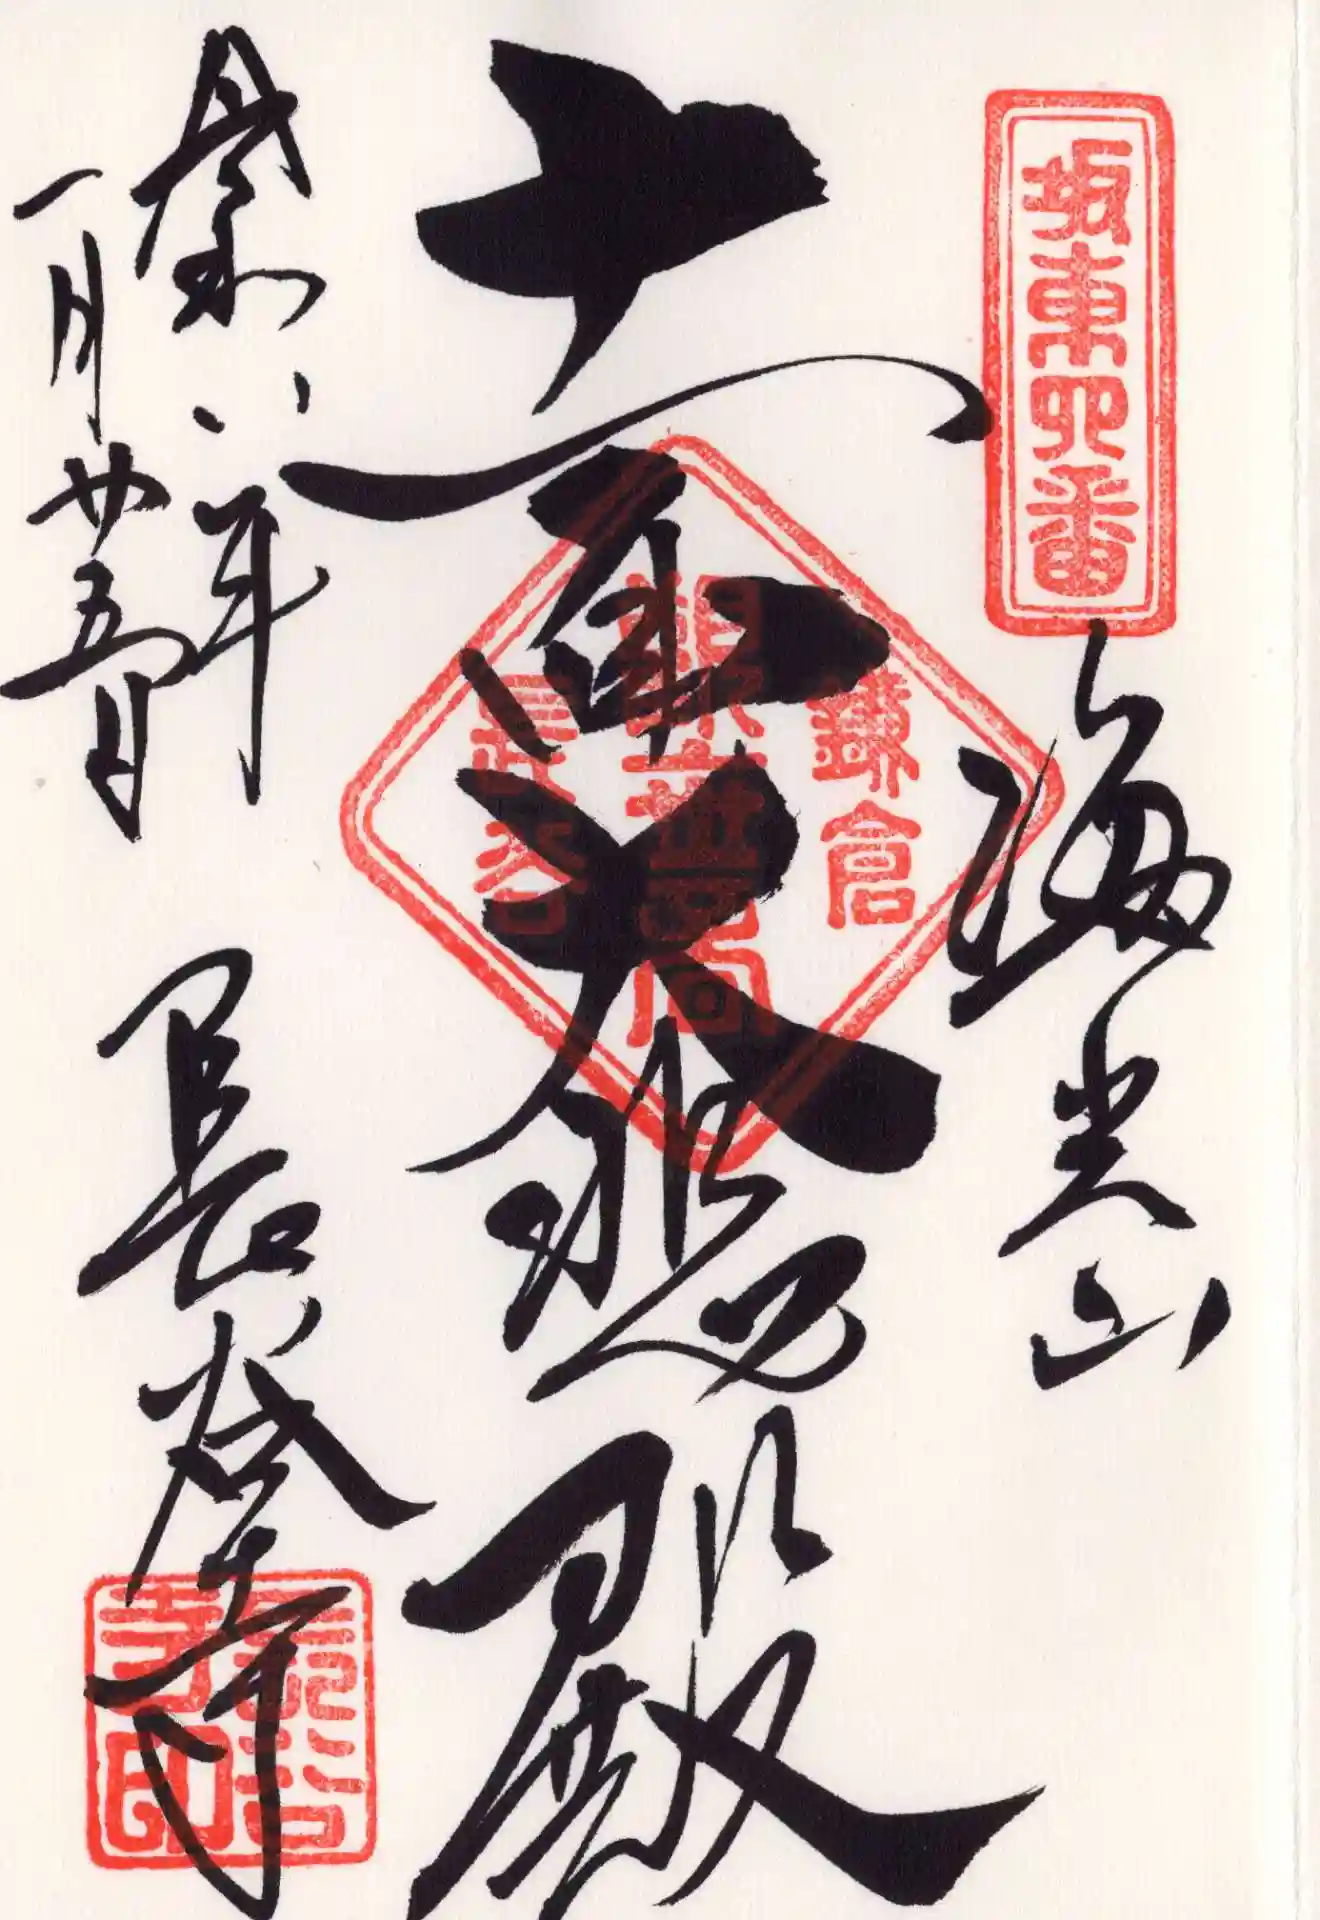 坂東四番
海光山
十一面大悲殿
鎌倉
長谷
八年
一月廿五日
長谷寺
長谷
寺印